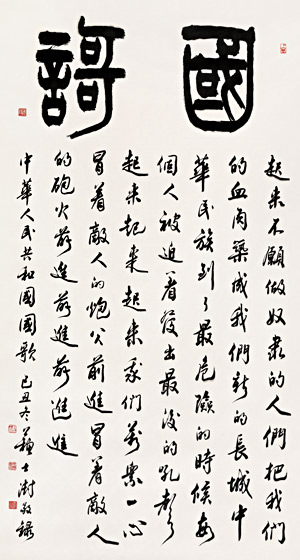 國謌
起来不願做奴隶的人們把我們
的血肉築成我們新的長城中
華民族到了最危險的時候每
個人被迫着發出最後的吼聲
起来起来起来我們萬衆一心
冒着敵人的炮火前進冒着敵人
的砲火前進前進前進進
中華人民共和國國歌己丑冬蘇士澍敬録